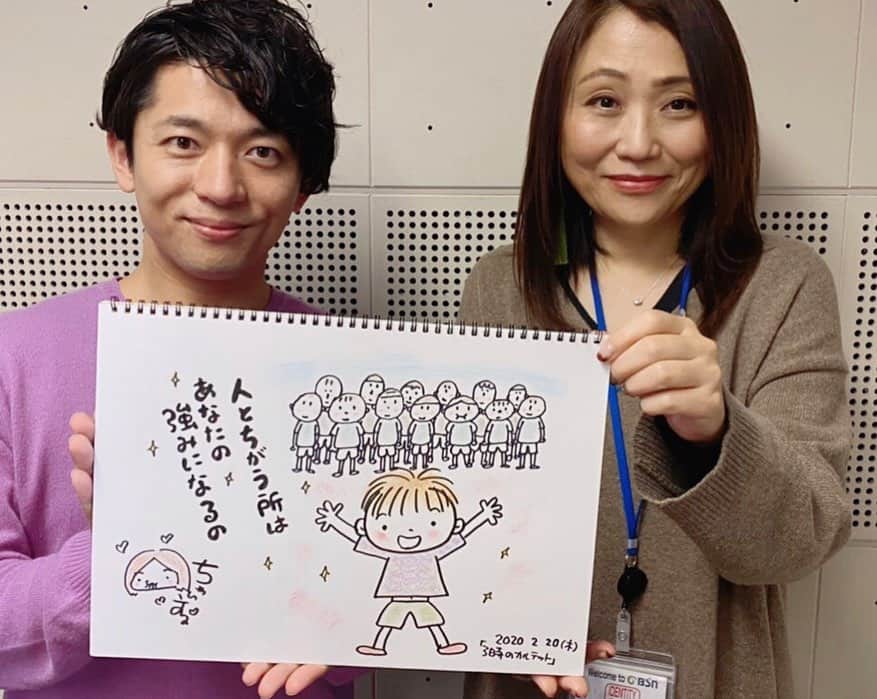 人とちがう所は
あなたの
強みになるの
2020 2.20(木)
「3時のカルテット」
Welcome to BSN
IDENTITY